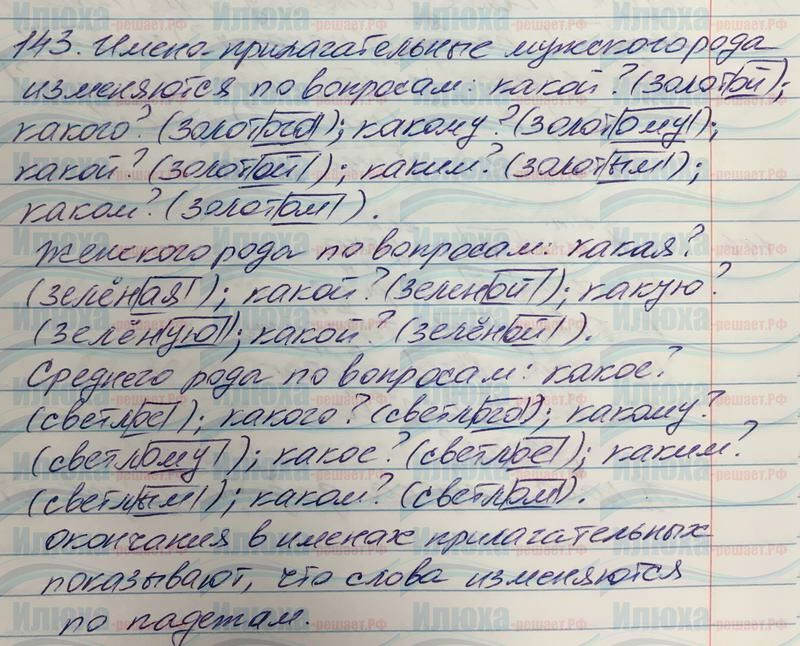 143. Имена прилагательные мужского рода
изменяются по вопросам: какой? (золотой);
какого? (золотого); какому? (золотому);
какой? (золотой); каким? (золотым);
каком? (золотом).
Женского рода по вопросам: какая?
(зелёная); какой? (зеленой); какую?
(зелёную); какой? (зелёной).
Среднего рода по вопросам: какое?
(светлое); какого? (светлого); какому?
(светлому); какое? (светлое); каким?
(светлым); каком? (светлом).
окончания в именах прилагательных
показывают, что слова изменяются
по падежам.